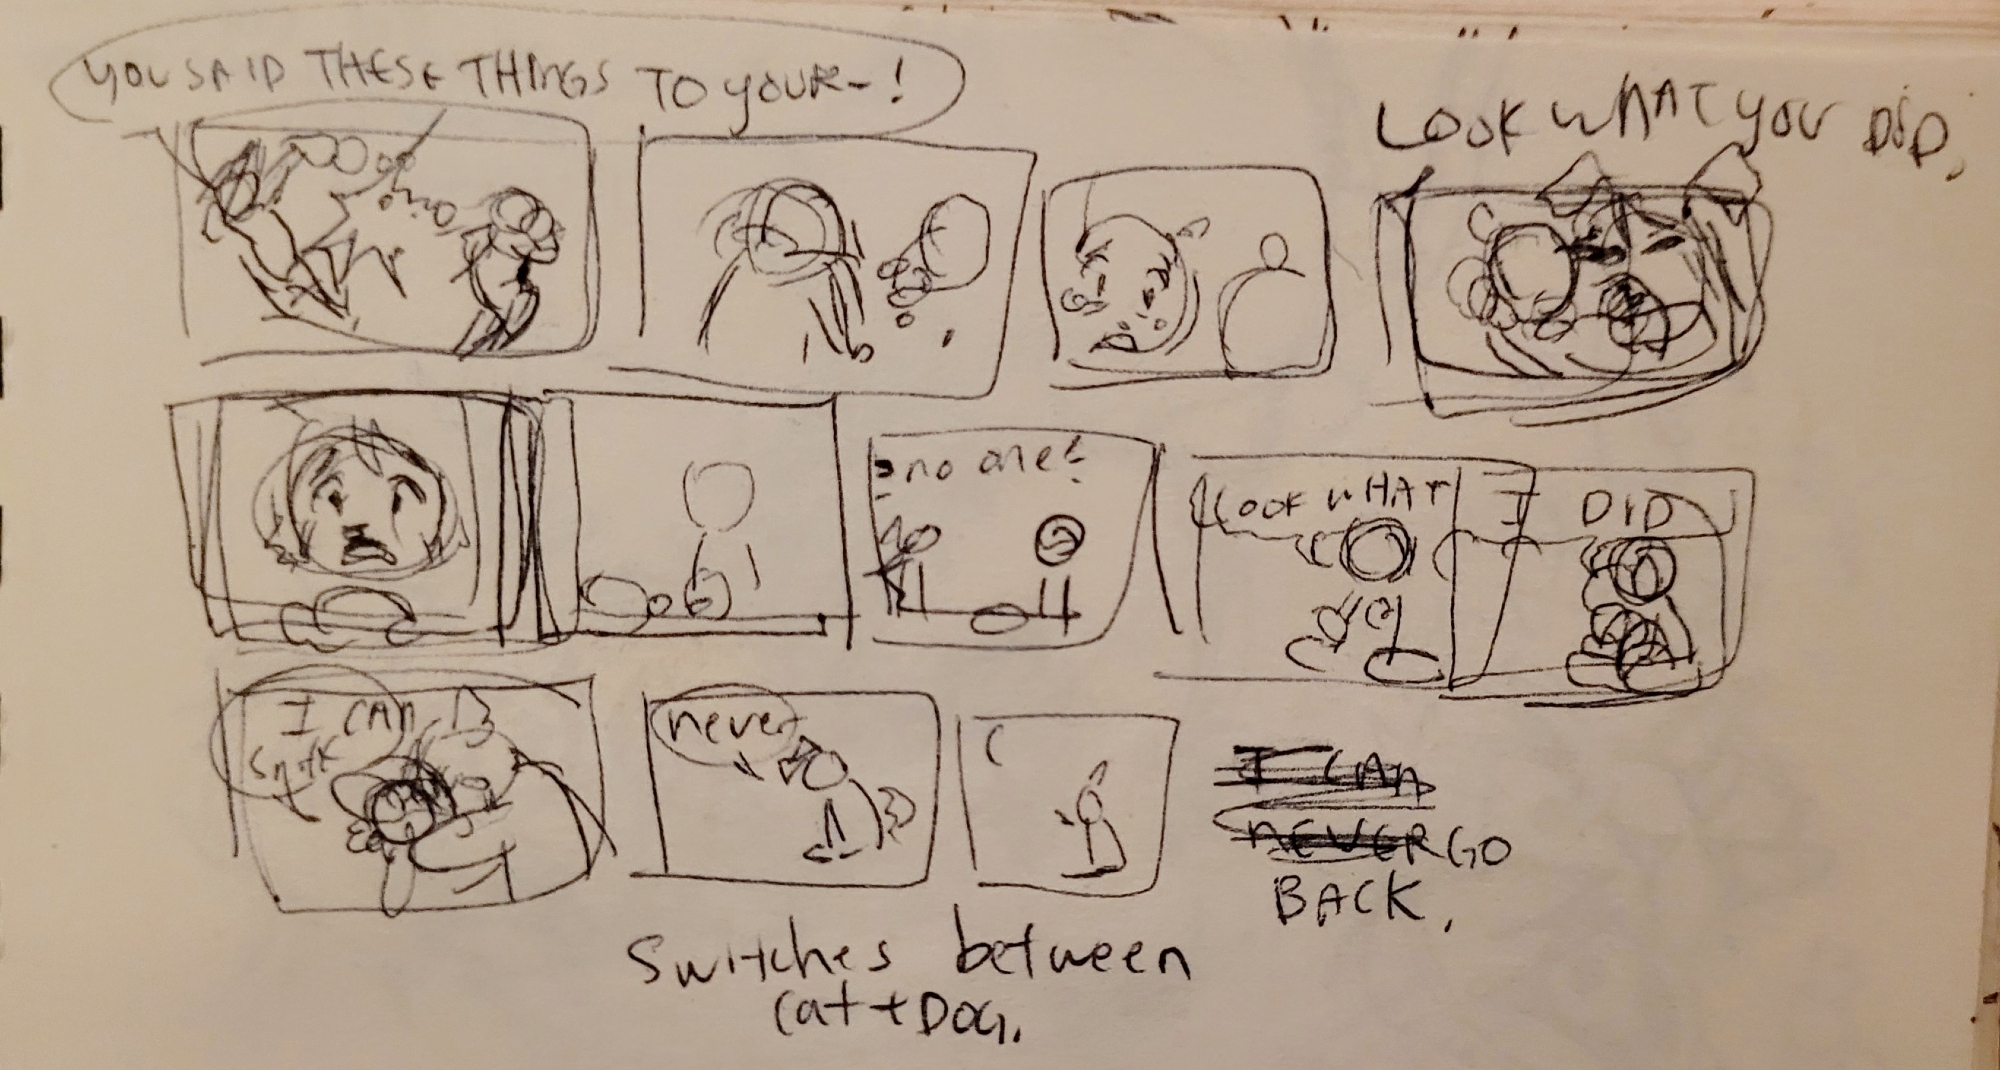 YOU SAID THESE THINGS TO YOUR-!
LOOK WHAT YOU DID.
no one!
LOOK WHAT I DID
I CAN
never
I CAN
NEVER GO
BACK.
Switches between
Cat + DOG.